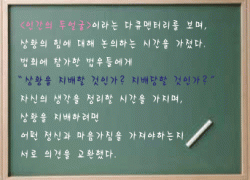 <인간의 두 얼굴>이라는 다큐멘터리를 보며,
상황의 힘에 대해 논의하는 시간을 가졌다.
법회에 참가한 법우들에게
"상황을 지배할 것인가? 지배당할 것인가?"
자신의 생각을 정리할 시간을 가지며,
상황을 지배하려면
어떤 정신과 마음가짐을 가져야하는지
서로 의견을 교환했다.